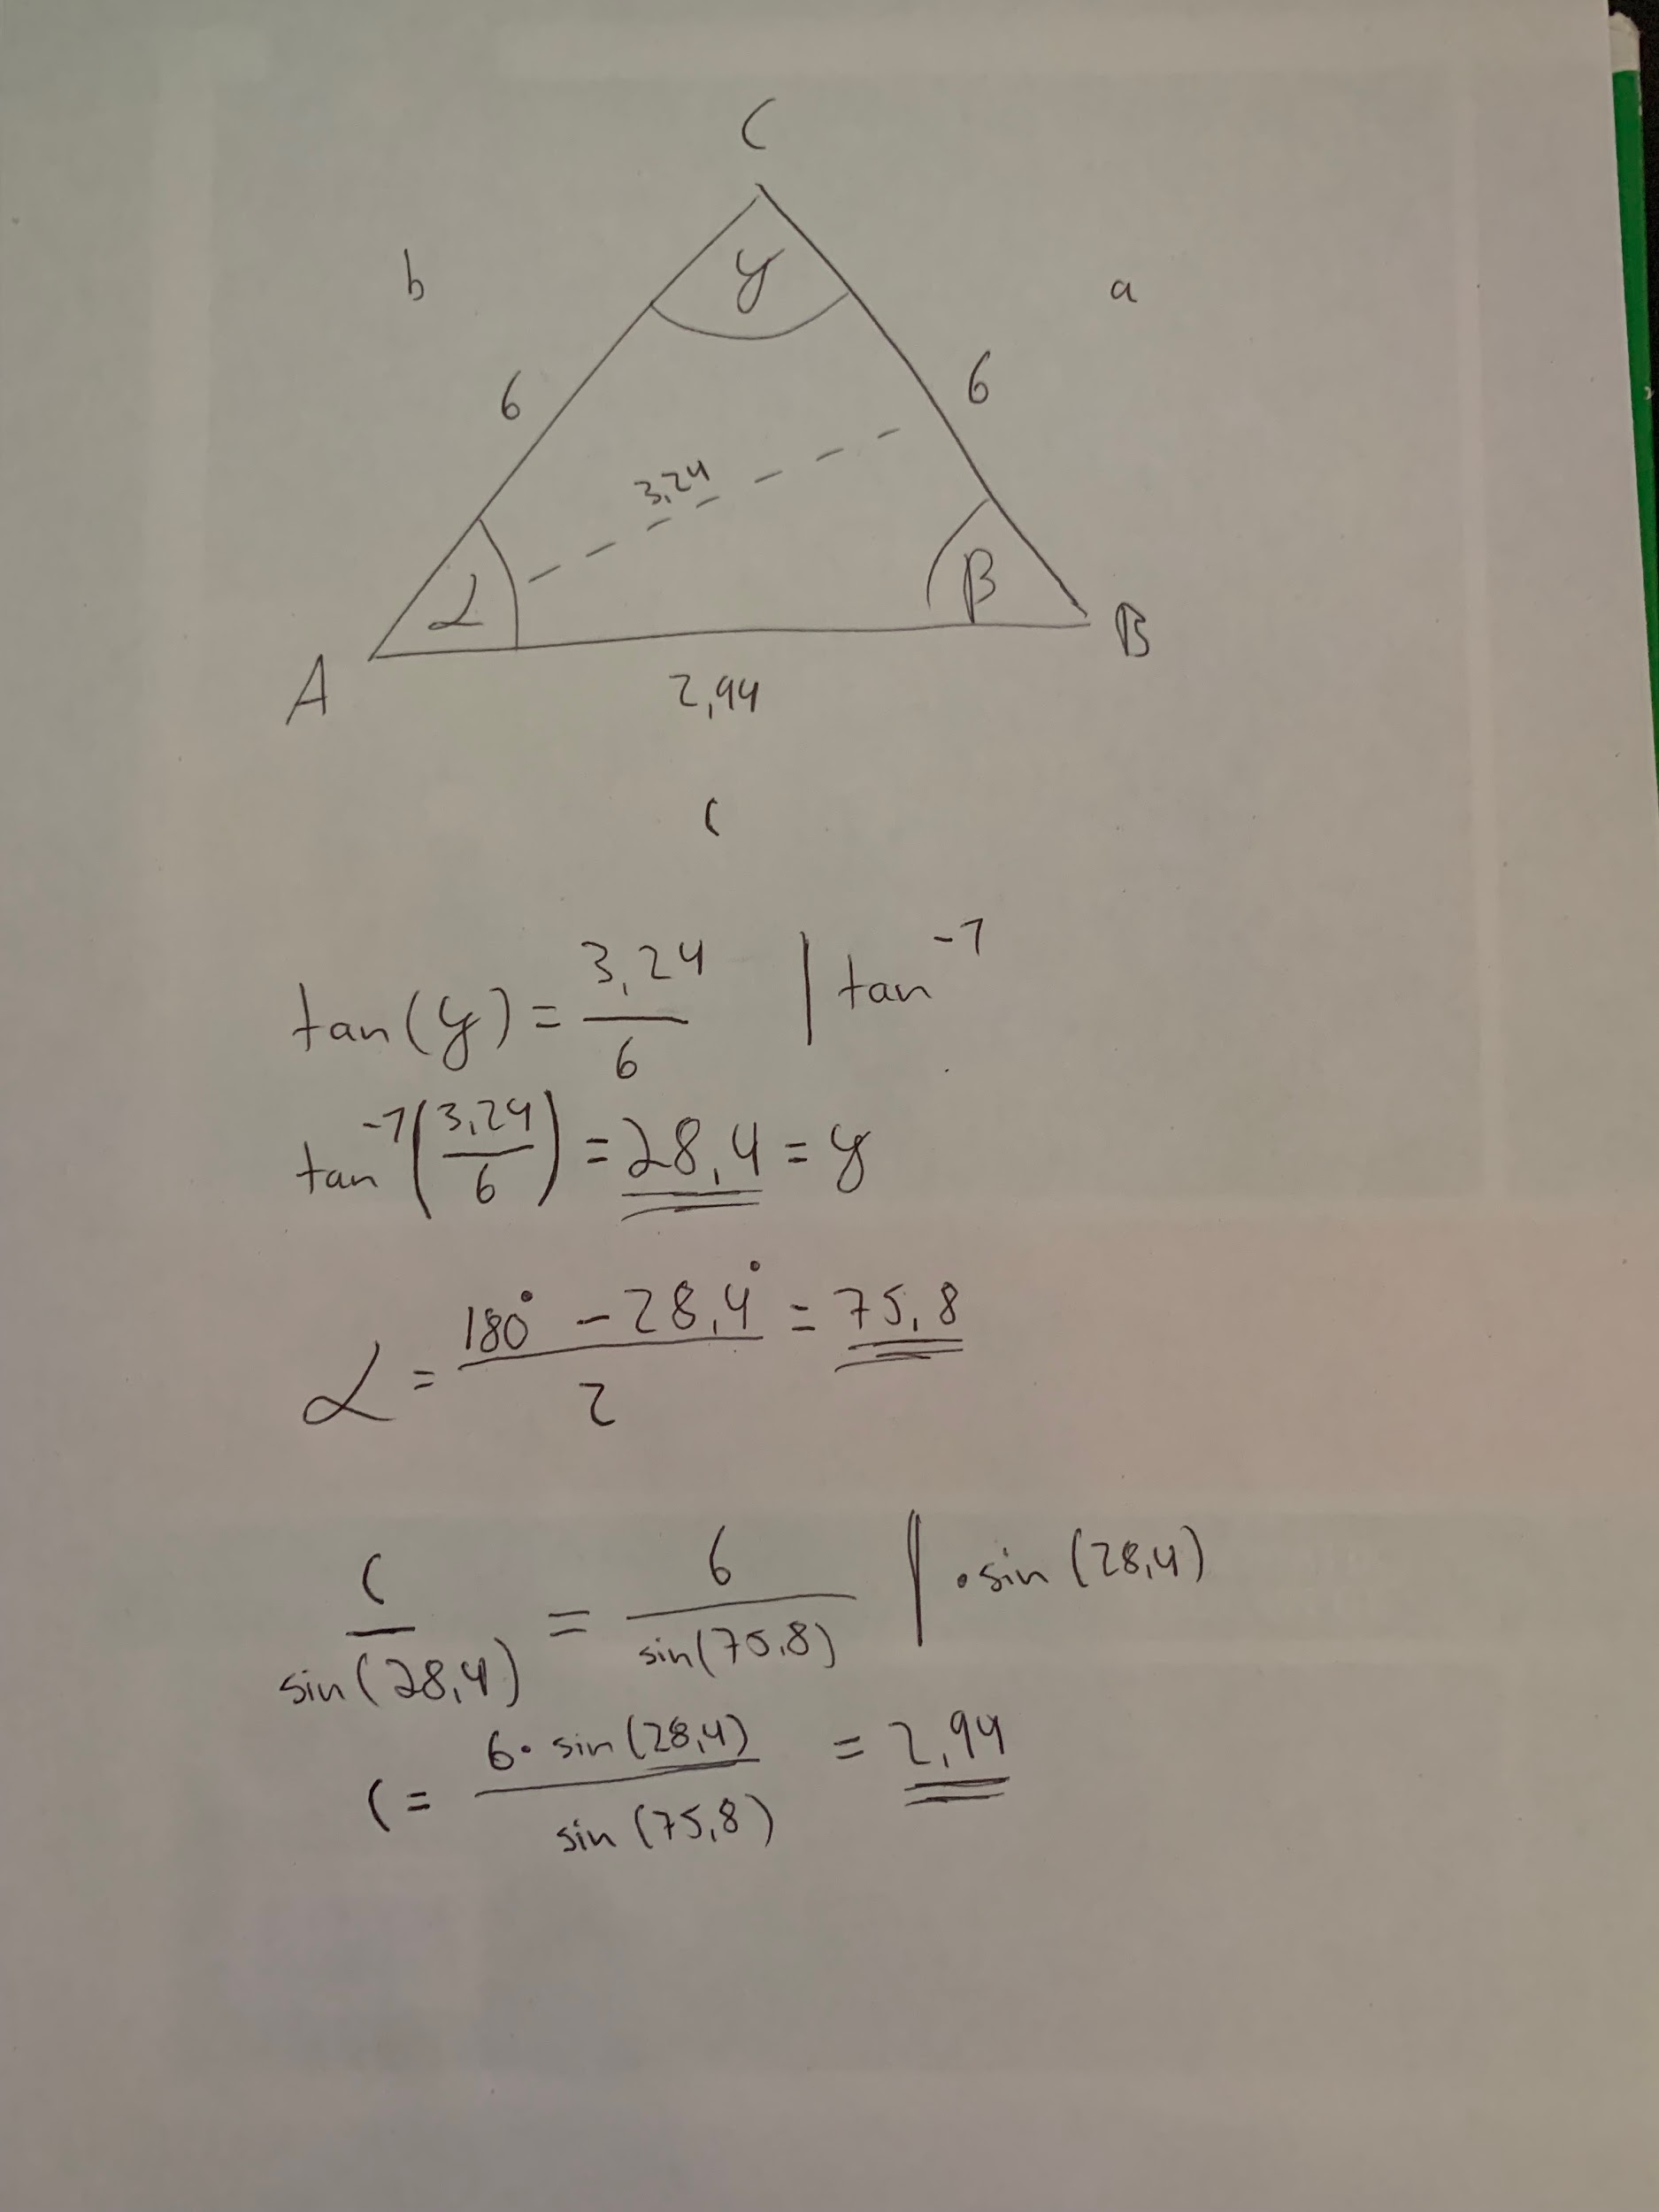 C
b
y
a
6
6
3,24
α
β
A
B
2,94
c
tan(y) = 3,24/6 | tan^-1
tan^-1(3,24/6) = 28,4 = y
α = (180° - 28,4°)/2 = 75,8
c/sin(28,4) = 6/sin(75,8) | · sin(28,4)
c = 6 · sin(28,4)/sin(75,8) = 2,94